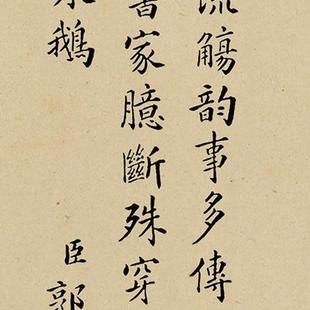 流觴韵事多傳
書家臆斷殊穿
鵝
臣郭